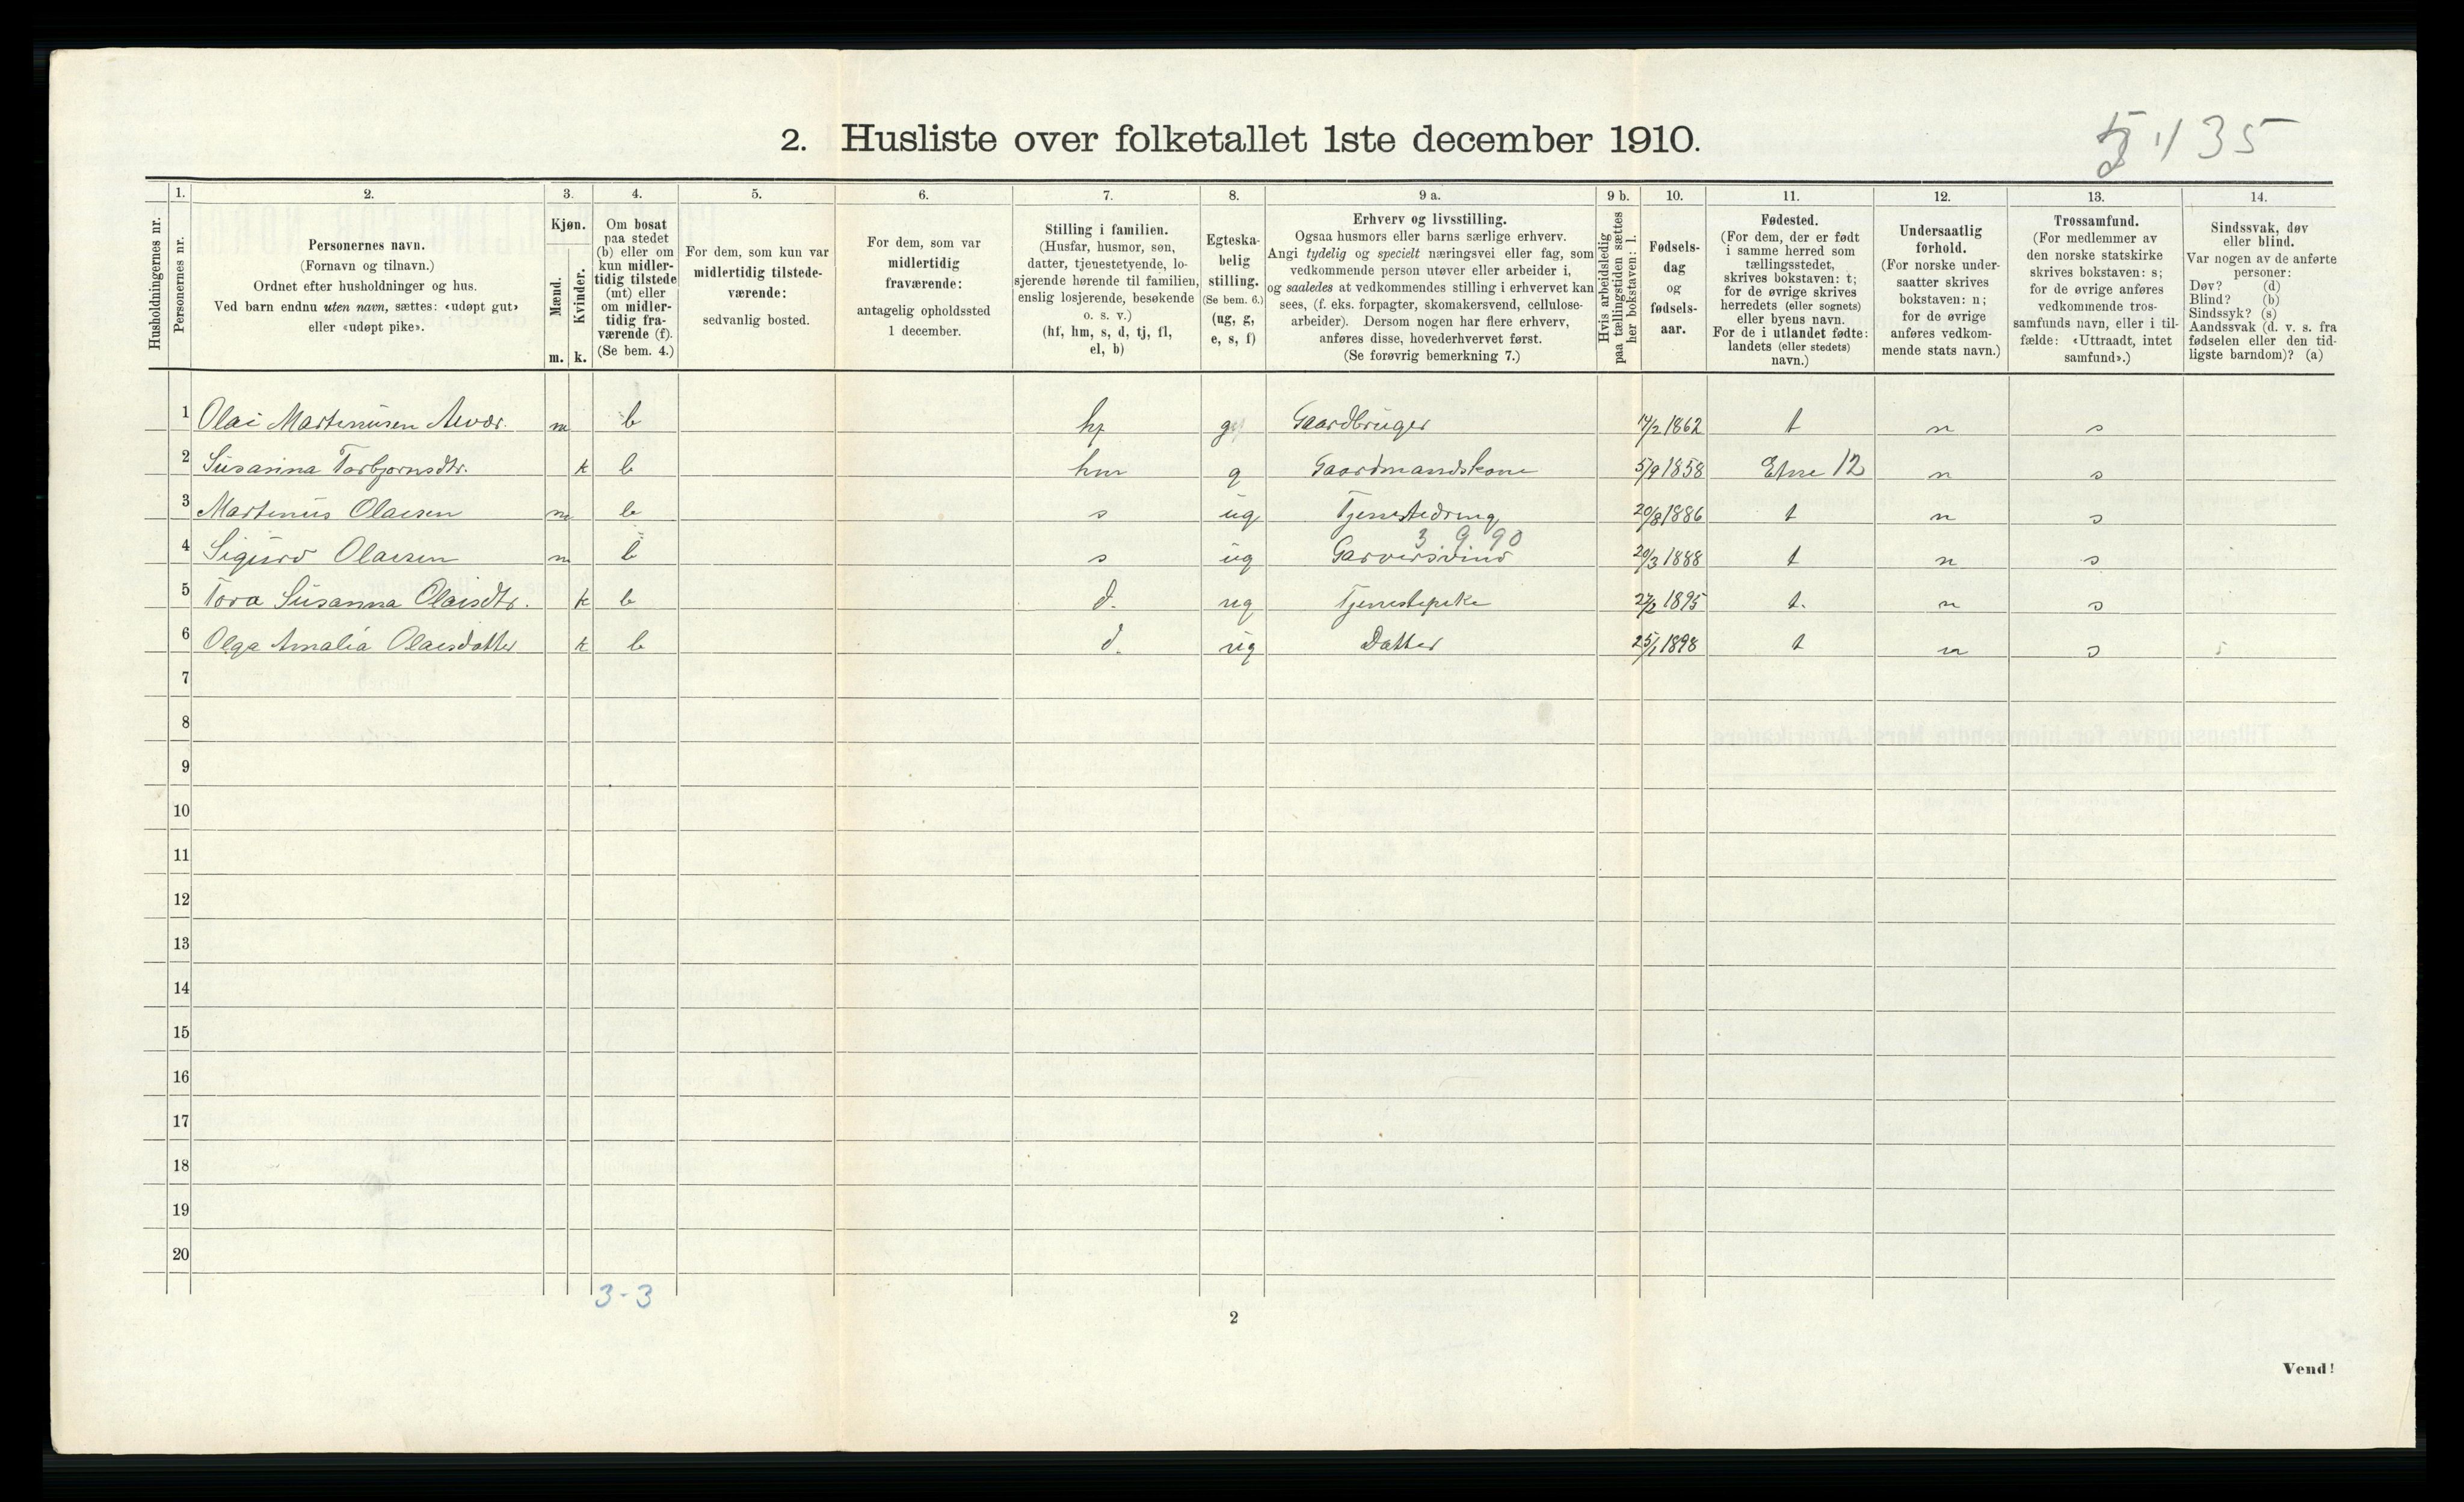 2. Husliste over folketallet 1ste december 1910.
35
Husholdningernes nr.
1. Personernes nr.
2. Personernes navn.
(Fornavn og tilnavn.)
Ordnet efter husholdninger og hus.
Ved barn endnu uten navn, sættes: «udøpt gut»
eller «udøpt pike».
3. Kjøn.
Mænd. m.
Kvinder. k.
4. Om bosat
paa stedet
(b) eller om
kun midler-
tidig tilstede
(mt) eller
om midler-
tidig fra-
værende (f).
(Se bem. 4.)
5. For dem, som kun var
midlertidig tilstede-
værende:
sedvanlig bosted.
6. For dem, som var
midlertidig
fraværende:
antagelig opholdssted
1 december.
7. Stilling i familien.
(Husfar, husmor, søn,
datter, tjenestetyende, lo-
sjerende hørende til familien,
enslig losjerende, besøkende
o. s. v.)
(hf, hm, s, d, tj, fl,
el, b)
8. Egteska-
belig
stilling.
(Se bem. 6.)
(ug, g,
e, s, f)
9 a. Erhverv og livsstilling.
Ogsaa husmors eller barns særlige erhverv.
Angi tydelig og specielt næringsvei eller fag, som
vedkommende person utøver eller arbeider i,
og saaledes at vedkommendes stilling i erhvervet kan
sees, (f. eks. forpagter, skomakersvend, cellulose-
arbeider). Dersom nogen har flere erhverv,
anføres disse, hovederhvervet først.
(Se forøvrig bemerkning 7.)
9 b. Hvis arbeidsledig
paa tællingstiden sættes
her bokstaven: l.
10. Fødsels-
dag
og
fødsels-
aar.
11. Fødested.
(For dem, der er født
i samme herred som
tællingsstedet,
skrives bokstaven: t;
for de øvrige skrives
herredets (eller sognets)
eller byens navn.
For de i utlandet fødte:
landets (eller stedets)
navn.)
12. Undersaatlig
forhold.
(For norske under-
saatter skrives
bokstaven: n;
for de øvrige
anføres vedkom-
mende stats navn.)
13. Trossamfund.
(For medlemmer av
den norske statskirke
skrives bokstaven: s;
for de øvrige anføres
vedkommende tros-
samfunds navn, eller i til-
fælde: «Uttraadt, intet
samfund».)
14. Sindssvak, døv
eller blind.
Var nogen av de anførte
personer:
Døv? (d)
Blind? (b)
Sindssyk? (s)
Aandssvak (d. v. s. fra
fødselen eller den tid-
ligste barndom)? (a)
1 Olai Martinusen m b hf g Gaardbruger 14/2 1862 t n s
2 Susanna Torbjørnsdtr. k b hm g Gaardmandskone 5/9 1858 Etne 12 n s
3 Martinus Olaisen m b s ug Tjenestedreng 20/8 1886 t n s
3 9 90
4 Sigurd Olaisen m b s ug Garversvend 20/3 1888 t n s
5 Tora Susanna Olaisdtr. k b d. ug Tjenestepike 27/2 1895 t. n s
6 Olga Amalia Olaisdatter k b d. ug Datter 25/1 1898 t n s
7
8
9
10
11
12
13
14
15
16
17
18
19
20
3-3
2
Vend!